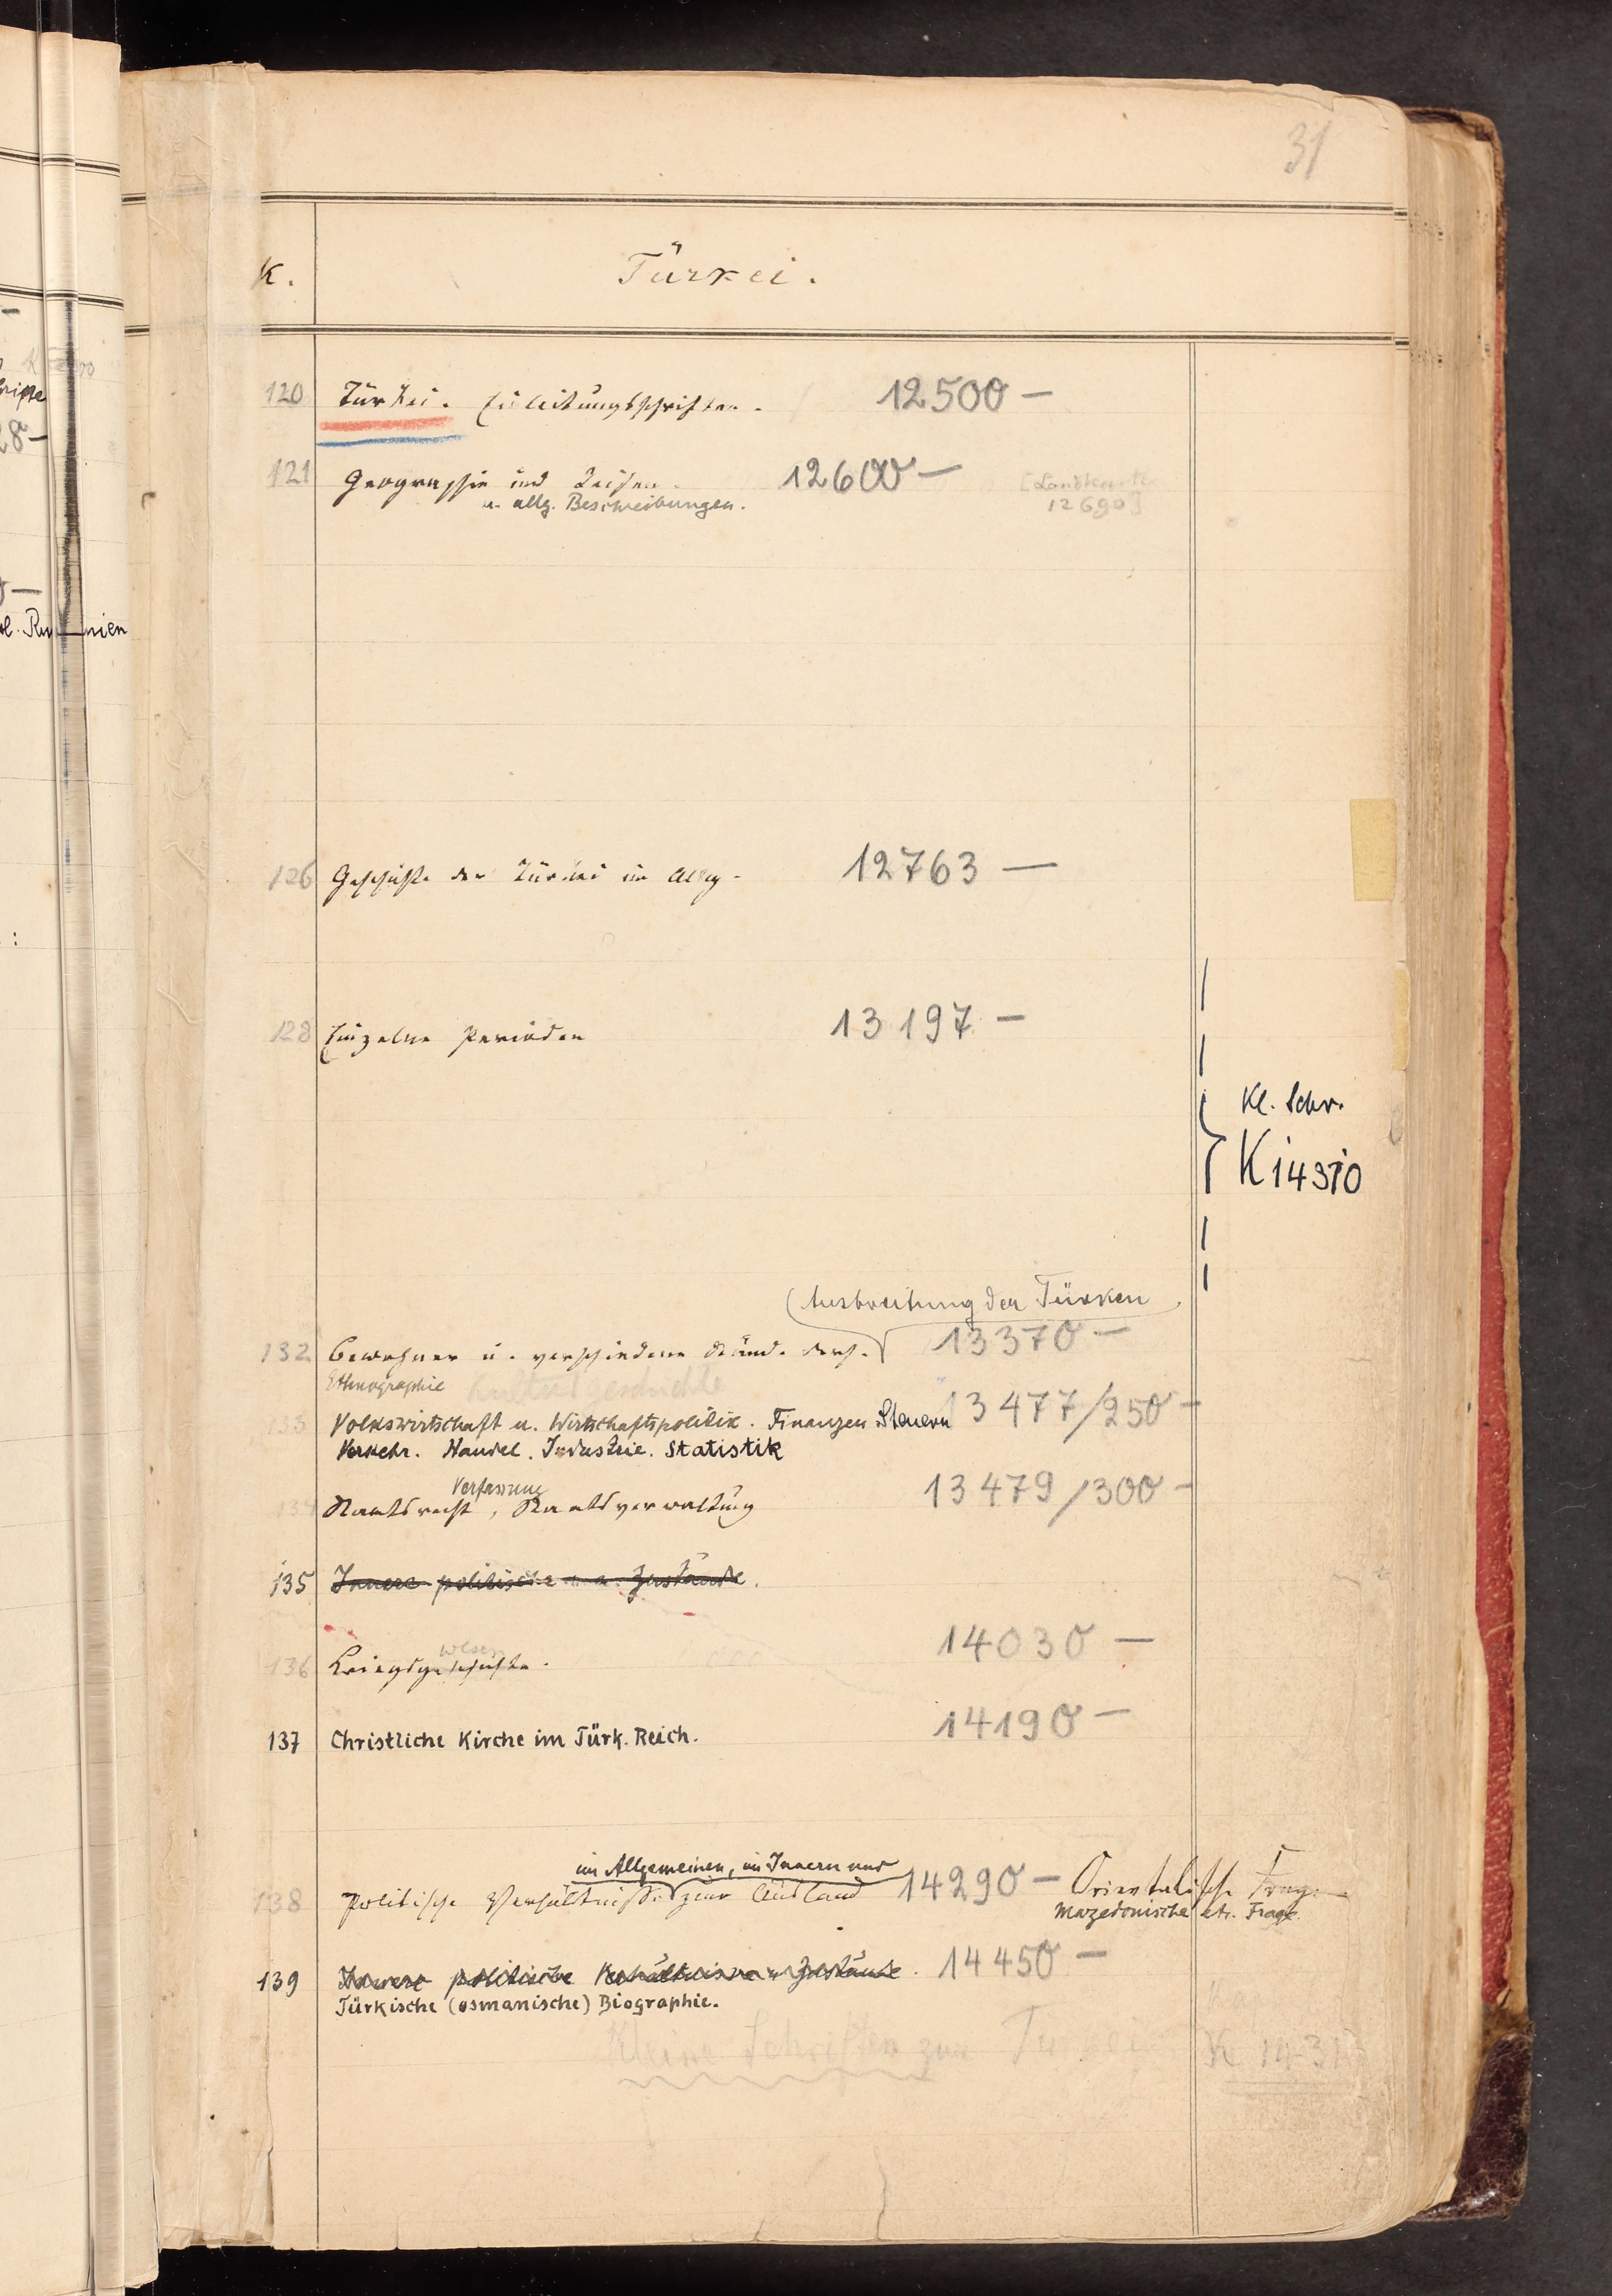 31
K. Türkei.
120 Türkei. Einleitungsschriften. 12500 —
121 Geographie und Reisen. 12600 — [Landkarten
u. allg. Beschreibungen. 12690]
126 Geschichte der Türkei im Allg. 12763 —
128 Einzelne Perioden 13197 —
Kl. Schr.
K 14310
Ausbreitung der Türken
132 Bewohner u. verschiedene Stände ders. 13370 —
Ethnographie Kulturgeschichte
133 Volkswirtschaft u. Wirtschaftspolitik. Finanzen Steuern 13477/250 —
Verkehr. Handel. Industrie. Statistik
Verfassung
134 Staatsrecht, Staatsverwaltung 13479/300 —
135 Innere politische Zustände.
14030 —
wesen
136 Kriegsgeschichte.
137 Christliche Kirche im Türk. Reich. 14190 —
im Allgemeinen, im Innern und
138 Politische Verhältnisse zum Ausland 14290 — Orientalische Frage
Mazedonische etc. Frage.
139 Innere politische Verhältnisse u. Zustände. 14450 —
Türkische (osmanische) Biographie.
Kleine Schriften zur Türkei K 1431